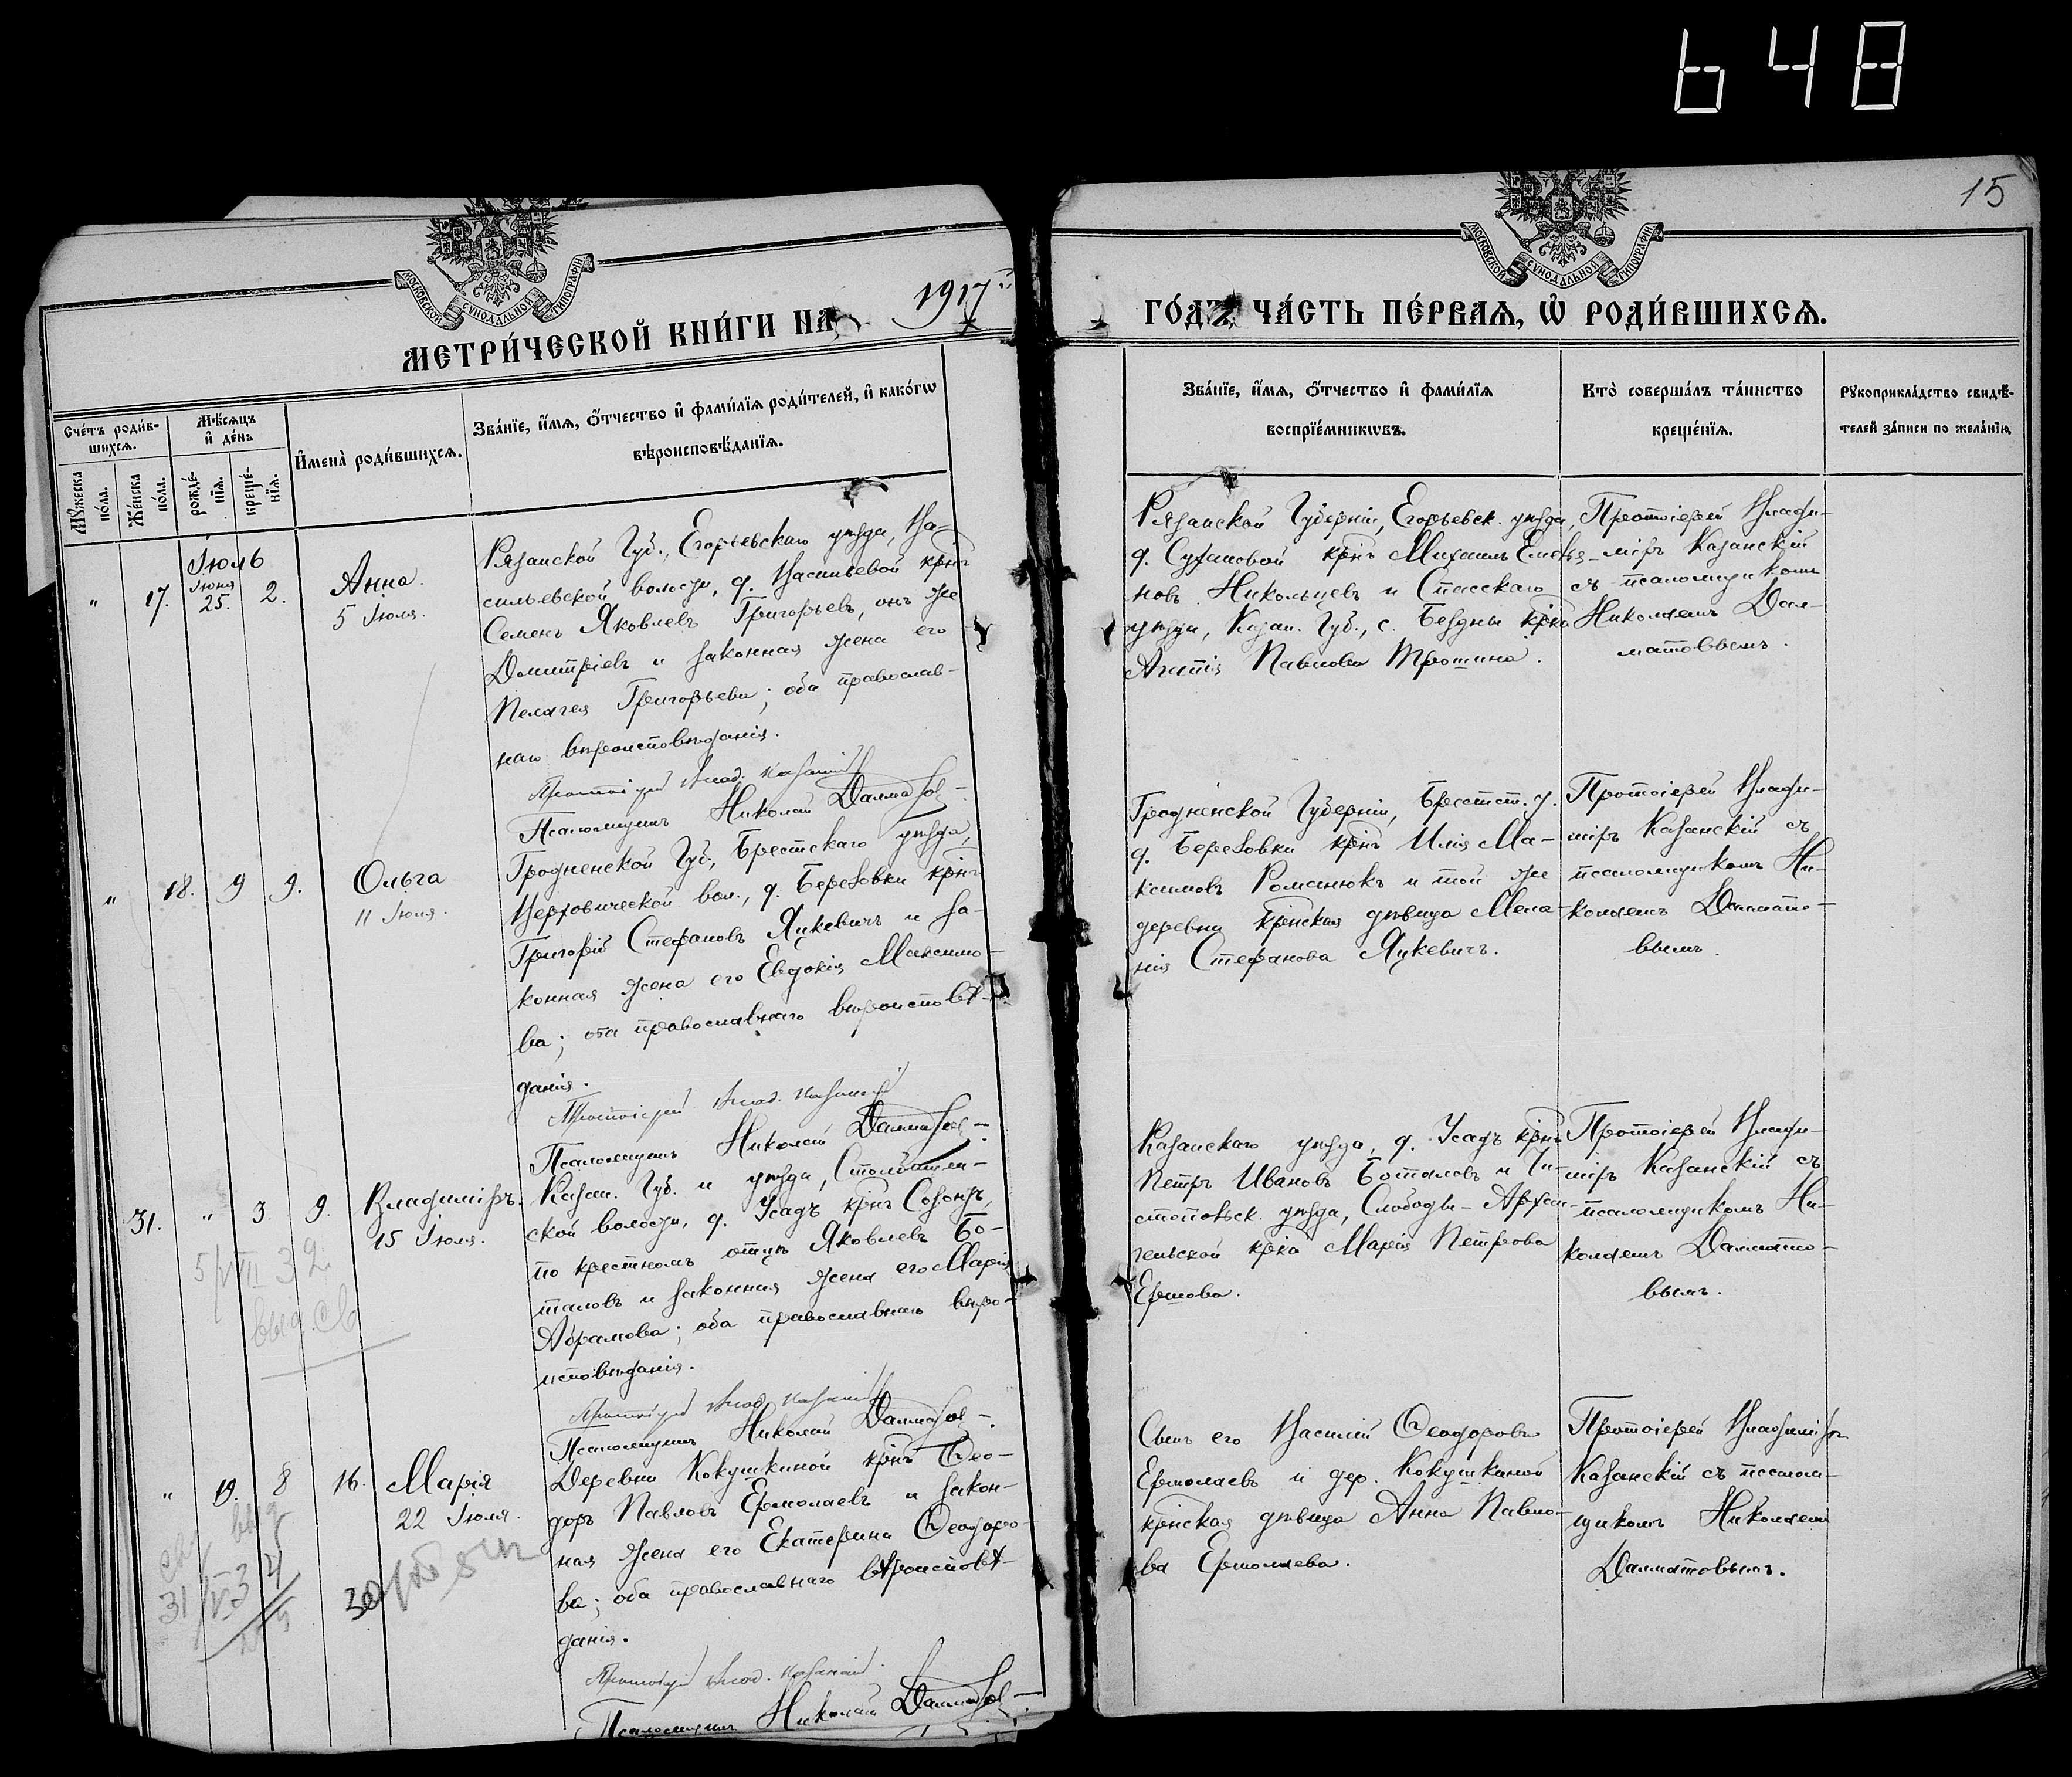 648
15
МОСКОВСКОЙ СУНОДАЛЬНОЙ ТИПОГРАФІИ
МОСКОВСКОЙ СУНОДАЛЬНОЙ ТИПОГРАФІИ
МЕТРИ́ЧЕСКОЙ КНИ́ГИ НА 1917
ГО́ДЪ ЧА́СТЬ ПЕ́РВАѦ, Ѿ РОДИ́ВШИХСѦ.
Сче́тъ роди́в-
шихсѧ.
Мꙋ́жеска
по́ла.
Же́нска
по́ла.
Мѣ́сѧцъ
и҆ де́нь
рожде́-
нїѧ.
креще́-
нїѧ.
И҆мена̀ роди́вшихсѧ.
Зва́нїе, и҆́мѧ, ѻ҆́тчество и҆ фами́лїѧ роди́телей, и҆ како́гѡ
вѣроисповѣ́данїѧ.
Зва́нїе, и҆́мѧ, ѻ҆́тчество и҆ фами́лїѧ
воспрїе́мникѡвъ.
Кто̀ соверша́лъ та́инство
креще́нїѧ.
Рꙋкоприкла́дство свидѣ́-
телей за́писи по жела́нїю.
Іюль
"
17.
Іюня
25.
2.
Анна.
5 Іюля.
Рязанской Губ., Егорьевскаго уѣзда, Ва-
сильевской волости, д. Васильевой крнъ
Семенъ Яковлевъ Григорьевъ, онъ же
Дмитріевъ и законная жена его
Пелагея Григорьева; оба православ-
наго вѣроисповѣданія.
Протоіерей Влад. Казанскій
Псаломщикъ Николай Далматов
Рязанской Губерніи, Егорьевск. уѣзда,
д. Сухановой крнъ Михаилъ Емелья-
новъ Никольцевъ и Спасскаго
уѣзда, Казан. Губ., с. Бездны крка
Агапія Павлова Трошина.
Протоіерей Влади-
міръ Казанскій
съ псаломщикомъ
Николаемъ Дал-
матовымъ.
"
18.
9
9.
Ольга
11 Іюля.
Гродненской Губ., Брестскаго уѣзда,
Верховической вол., д. Березовки крнъ
Григорій Стефановъ Яцкевичъ и за-
конная жена его Евдокія Максимо-
ва; оба православнаго вѣроисповѣ-
данія.
Протоіерей Влад. Казанскій
Псаломщикъ Николай Далматов
Гродненской Губерніи, Брестск. у.
д. Березовки крнъ Илія Ма-
ксимовъ Романюкъ и той же
деревни крнская дѣвица Мела-
нія Стефанова Яцкевичъ.
Протоіерей Влади-
міръ Казанскій съ
псаломщикомъ Ни-
колаемъ Далмато-
вымъ.
31.
"
3.
9.
Владиміръ.
15 Іюля.
5/VII 32
выд. св
Казан. Губ. и уѣзда, Столбищен-
ской волости, д. Усадъ крнъ Созонъ,
по крестномъ отцѣ Яковлевъ Бо-
таловъ и законная жена его Марія
Абрамова; оба православнаго вѣро-
исповѣданія.
Протоіерей Влад. Казанскій
Псаломщикъ Николай Далматов
Казанскаго уѣзда, д. Усадъ крнъ
Петръ Ивановъ Боталовъ и Чи-
стопольск. уѣзда, Слободы-Архан-
гельской крка Марія Петрова
Ершова.
Протоіерей Влади-
міръ Казанскій съ
псаломщикомъ Ни-
колаемъ Далмато-
вымъ.
"
19.
8
16.
Марія
22 Іюля.
выд
31/VI 34
Деревни Кокушкиной крнъ Ѳео-
доръ Павловъ Ермолаевъ и закон-
ная жена его Екатерина Ѳеодоро-
ва; оба православнаго вѣроисповѣ-
данія.
Протоіерей Влад. Казанскій.
Псаломщикъ Николай Далматов
Сынъ его Василій Ѳеодоровъ
Ермолаевъ и дер. Кокушкиной
крнская дѣвица Анна Павло-
ва Ермолаева.
Протоіерей Владиміръ
Казанскій съ псалом-
щикомъ Николаемъ
Далматовымъ.